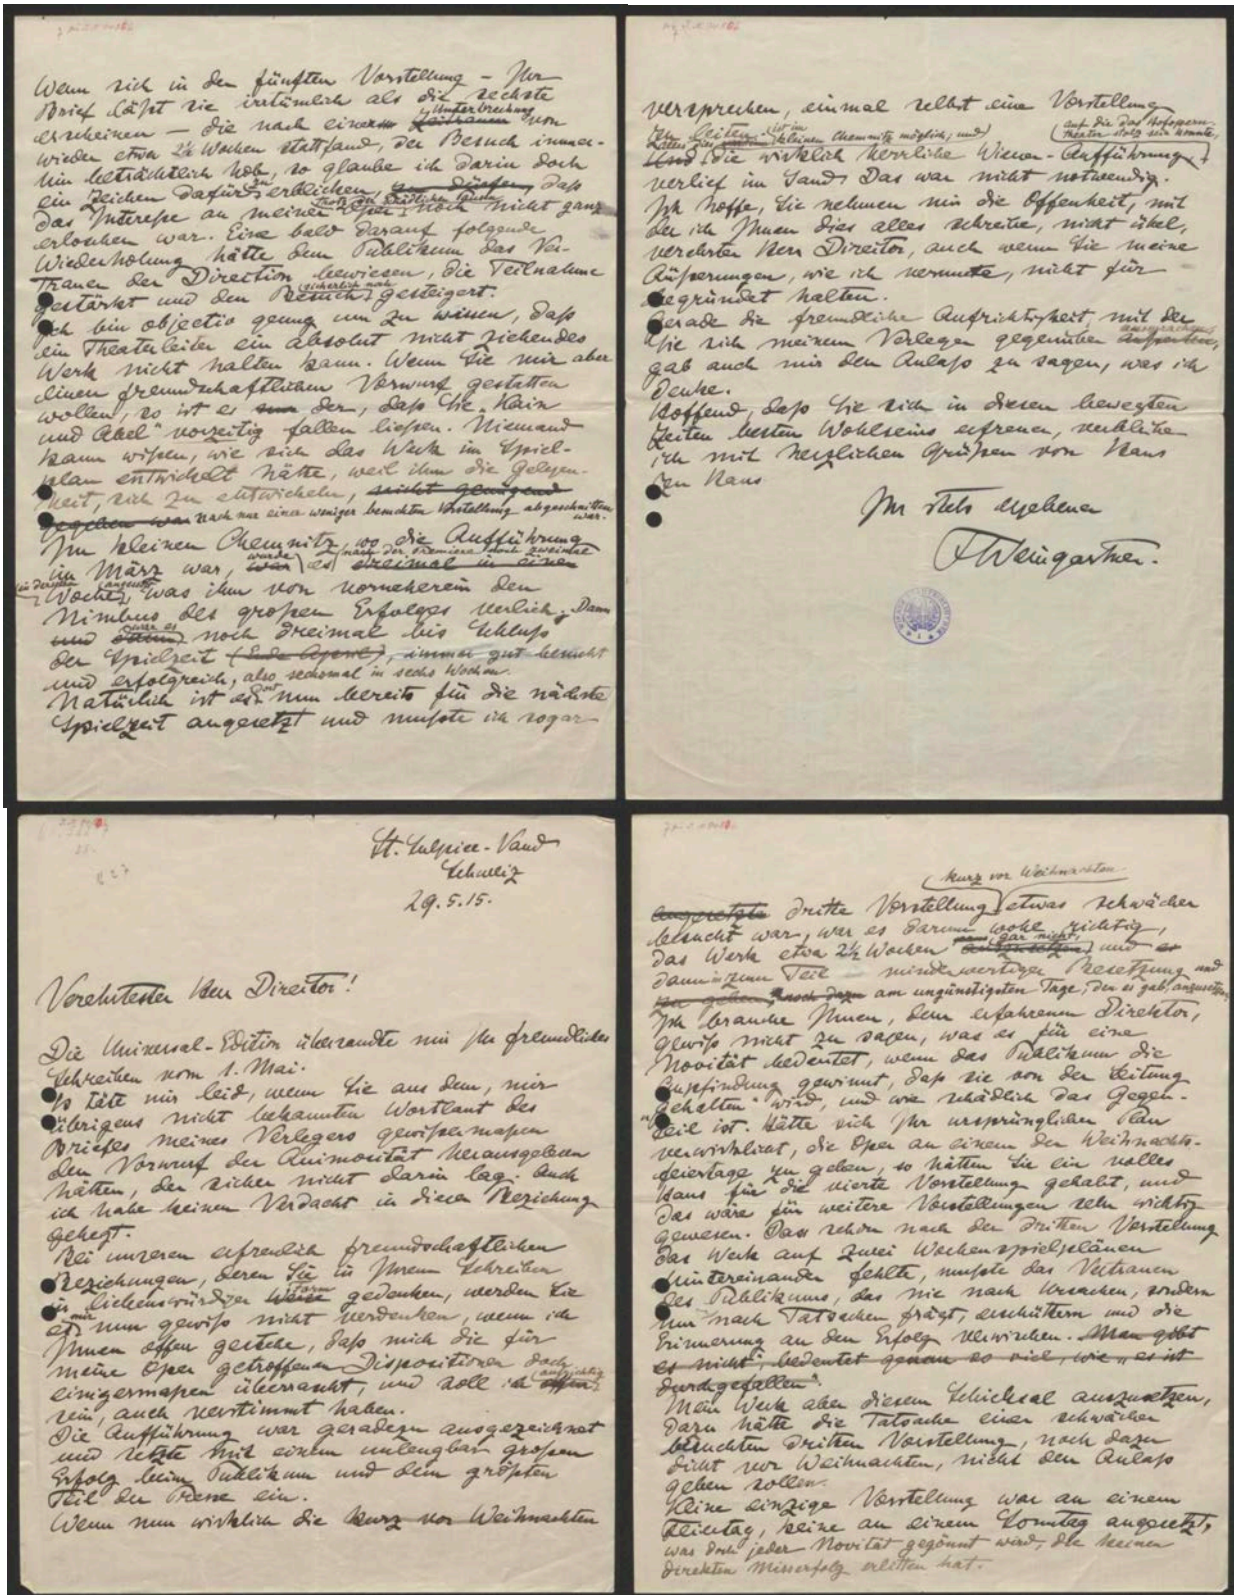 Wenn sich in der fünften Vorstellung – Ihr
Brief läßt sie irrtümlich als die sechste
Unterbrechung
erscheinen – die nach einer Zeitraum von
wieder etwa 2½ Wochen stattfand, der Besuch immer-
hin beträchtlich hob, so glaube ich darin doch
ein Zeichen dafür zu erblicken, zu dürfen, daß
trotz der schädlichen Pause
das Interesse an meiner Oper noch nicht ganz
erloschen war. Eine bald darauf folgende
Wiederholung hätte dem Publikum das Ver-
trauen der Direction bewiesen, die Teilnahme
sicherlich noch
gestärkt und den Besuch gesteigert.
Ich bin objectiv genug um zu wissen, daß
ein Theaterleiter ein absolut nicht ziehendes
Werk nicht halten kann. Wenn Sie mir aber
einen freundschaftlichen Vorwurf gestatten
wollen, so ist es nun der, daß Sie „Kain
und Abel" vorzeitig fallen ließen. Niemand
kann wissen, wie sich das Werk im Spiel-
plan entwickelt hätte, weil ihm die Gelegen-
heit, sich zu entwickeln, nicht genügend
gegeben war nach nur einer weniger besuchten Vorstellung abgeschnitten
war.
Im kleinen Chemnitz, wo die Aufführung
wurde nach der Premiere noch zweimal
im März war, war es dreimal in einer
in derselben angesetzt
Woche, was ihm von vorneherein den
Nimbus des großen Erfolges verlieh; Dann
war es
und dann noch dreimal bis Schluß
der Spielzeit (Ende April), immer gut besucht
und erfolgreich, also sechsmal in sechs Wochen.
dort
Natürlich ist es nun bereits für die nächste
Spielzeit angesetzt und mußte ich sogar
versprechen, einmal selbst eine Vorstellung
auf die das Hofopern-
theater stolz sein konnte,
zu leiten.
Alles dies ist im kleinen Chemnitz möglich; und
Und die wirklich herrliche Wiener-Aufführung
verlief im Sand. Das war nicht notwendig.
Ich hoffe, Sie nehmen mir die Offenheit, mit
der ich Ihnen dies alles schreibe, nicht übel,
verehrter Herr Director, auch wenn Sie meine
Äußerungen, wie ich vermute, nicht für
begründet halten.
Gerade die freundliche Aufrichtigkeit, mit der
aussprachen
Sie sich meinem Verleger gegenüber äußerten,
gab auch mir den Anlaß zu sagen, was ich
denke.
Hoffend, daß Sie sich in diesen bewegten
Zeiten besten Wohlseins erfreuen, verbleibe
ich mit herzlichen Grüßen von Haus
zu Haus
Ihr stets ergebener
FWeingartner.
St. Sulpice-Vaud
Schweiz
29.5.15.
Verehrtester Herr Director!
Die Universal-Edition übersandte mir Ihr freundliches
Schreiben vom 1. Mai.
Es täte mir leid, wenn Sie aus dem, mir
übrigens nicht bekannten Wortlaut des
Briefes meines Verlegers gewißermaßen
den Vorwurf der Animosität herausgelesen
hätten, der sicher nicht darin lag. Auch
ich habe keinen Verdacht in dieser Beziehung
gehegt.
Bei unseren erfreulich freundschaftlichen
Beziehungen, deren Sie in Ihrem Schreiben
Form
in liebenswürdiger Weise gedenken, werden Sie
mir
es nun gewiß nicht verdenken, wenn ich
Ihnen offen gestehe, daß mich die für
meine Oper getroffenen Dispositionen doch
aufrichtig
einigermaßen überrascht, und soll ich offen
sein, auch verstimmt haben.
Die Aufführung war geradezu ausgezeichnet
und setzte mit einem unleugbar großen
Erfolg beim Publikum und dem größten
Teil der Presse ein.
Wenn nun wirklich die kurz vor Weihnachten
kurz vor Weihnachten
angesetzte dritte Vorstellung etwas schwächer
besucht war, war es darum wohl richtig,
gar nicht,
das Werk etwa 2½ Wochen auszusetzen und es
dann in zum Teil minderwertiger Besetzung und
zu geben, noch dazu am ungünstigsten Tage, den es gab, anzusetzen.
Ich brauche Ihnen, dem erfahrenen Direktor,
gewiß nicht zu sagen, was es für eine
Novität bedeutet, wenn das Publikum die
Empfindung gewinnt, daß sie von der Leitung
„gehalten" wird, und wie schädlich das Gegen-
teil ist. Hätte sich Ihr ursprünglicher Plan
verwirklicht, die Oper an einem der Weihnachts-
feiertage zu geben, so hätten Sie ein volles
Haus für die vierte Vorstellung gehabt, und
das wäre für weitere Vorstellungen sehr wichtig
gewesen. Dass schon nach der dritten Vorstellung
das Werk auf zwei Wochenspielplänen
hintereinander fehlte, mußte das Vertrauen
des Publikums, das nie nach Ursachen, sondern
nur nach Tatsachen frägt, erschüttern und die
Erinnerung an den Erfolg verwischen. „Man gibt
es nicht", bedeutet genau so viel, wie „es ist
durchgefallen".
Mein Werk aber diesem Schicksal auszusetzen,
dazu hätte die Tatsache einer schwächer
besuchten dritten Vorstellung, noch dazu
dicht vor Weihnachten, nicht den Anlaß
geben sollen.
Keine einzige Vorstellung war an einem
Feiertag, keine an einem Sonntag angesetzt,
was doch jeder Novität gegönnt wird, die keinen
direkten Misserfolg erlitten hat.